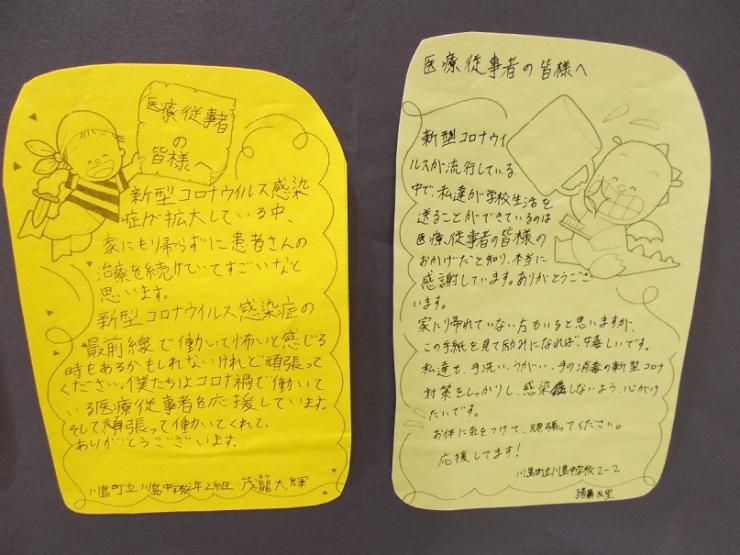 医療従事者
の
皆様へ
新型コロナウイルス感染
症が拡大している中、
家にも帰らずに患者さんの
治療を続けていてすごいなと
思います。
新型コロナウイルス感染症の
最前線で働いて怖いと感じる
時もあるかもしれないけれど頑張って
ください。僕たちはコロナ禍で働いて
いる医療従事者を応援しています。
そして頑張って働いてくれて、
ありがとうございます。
川島町立川島中学校2年2組 茂籠大輝
医療従事者の皆様へ
新型コロナウイ
ルスが流行している
中で、私達が学校生活を
送ることができているのは
医療従事者の皆様の
おかげだと知り、本当に
感謝しています。ありがとうござ
います。
家に帰れていない方もいると思いますが、
この手紙を見て励みになれば、嬉しいです。
私達も、手洗い、うがい、手の消毒の新型コロナ
対策をしっかりし、感染しないよう、心がけ
たいです。
お体に気をつけて、頑張ってください。
応援してます！
川島町立川島中学校2-2